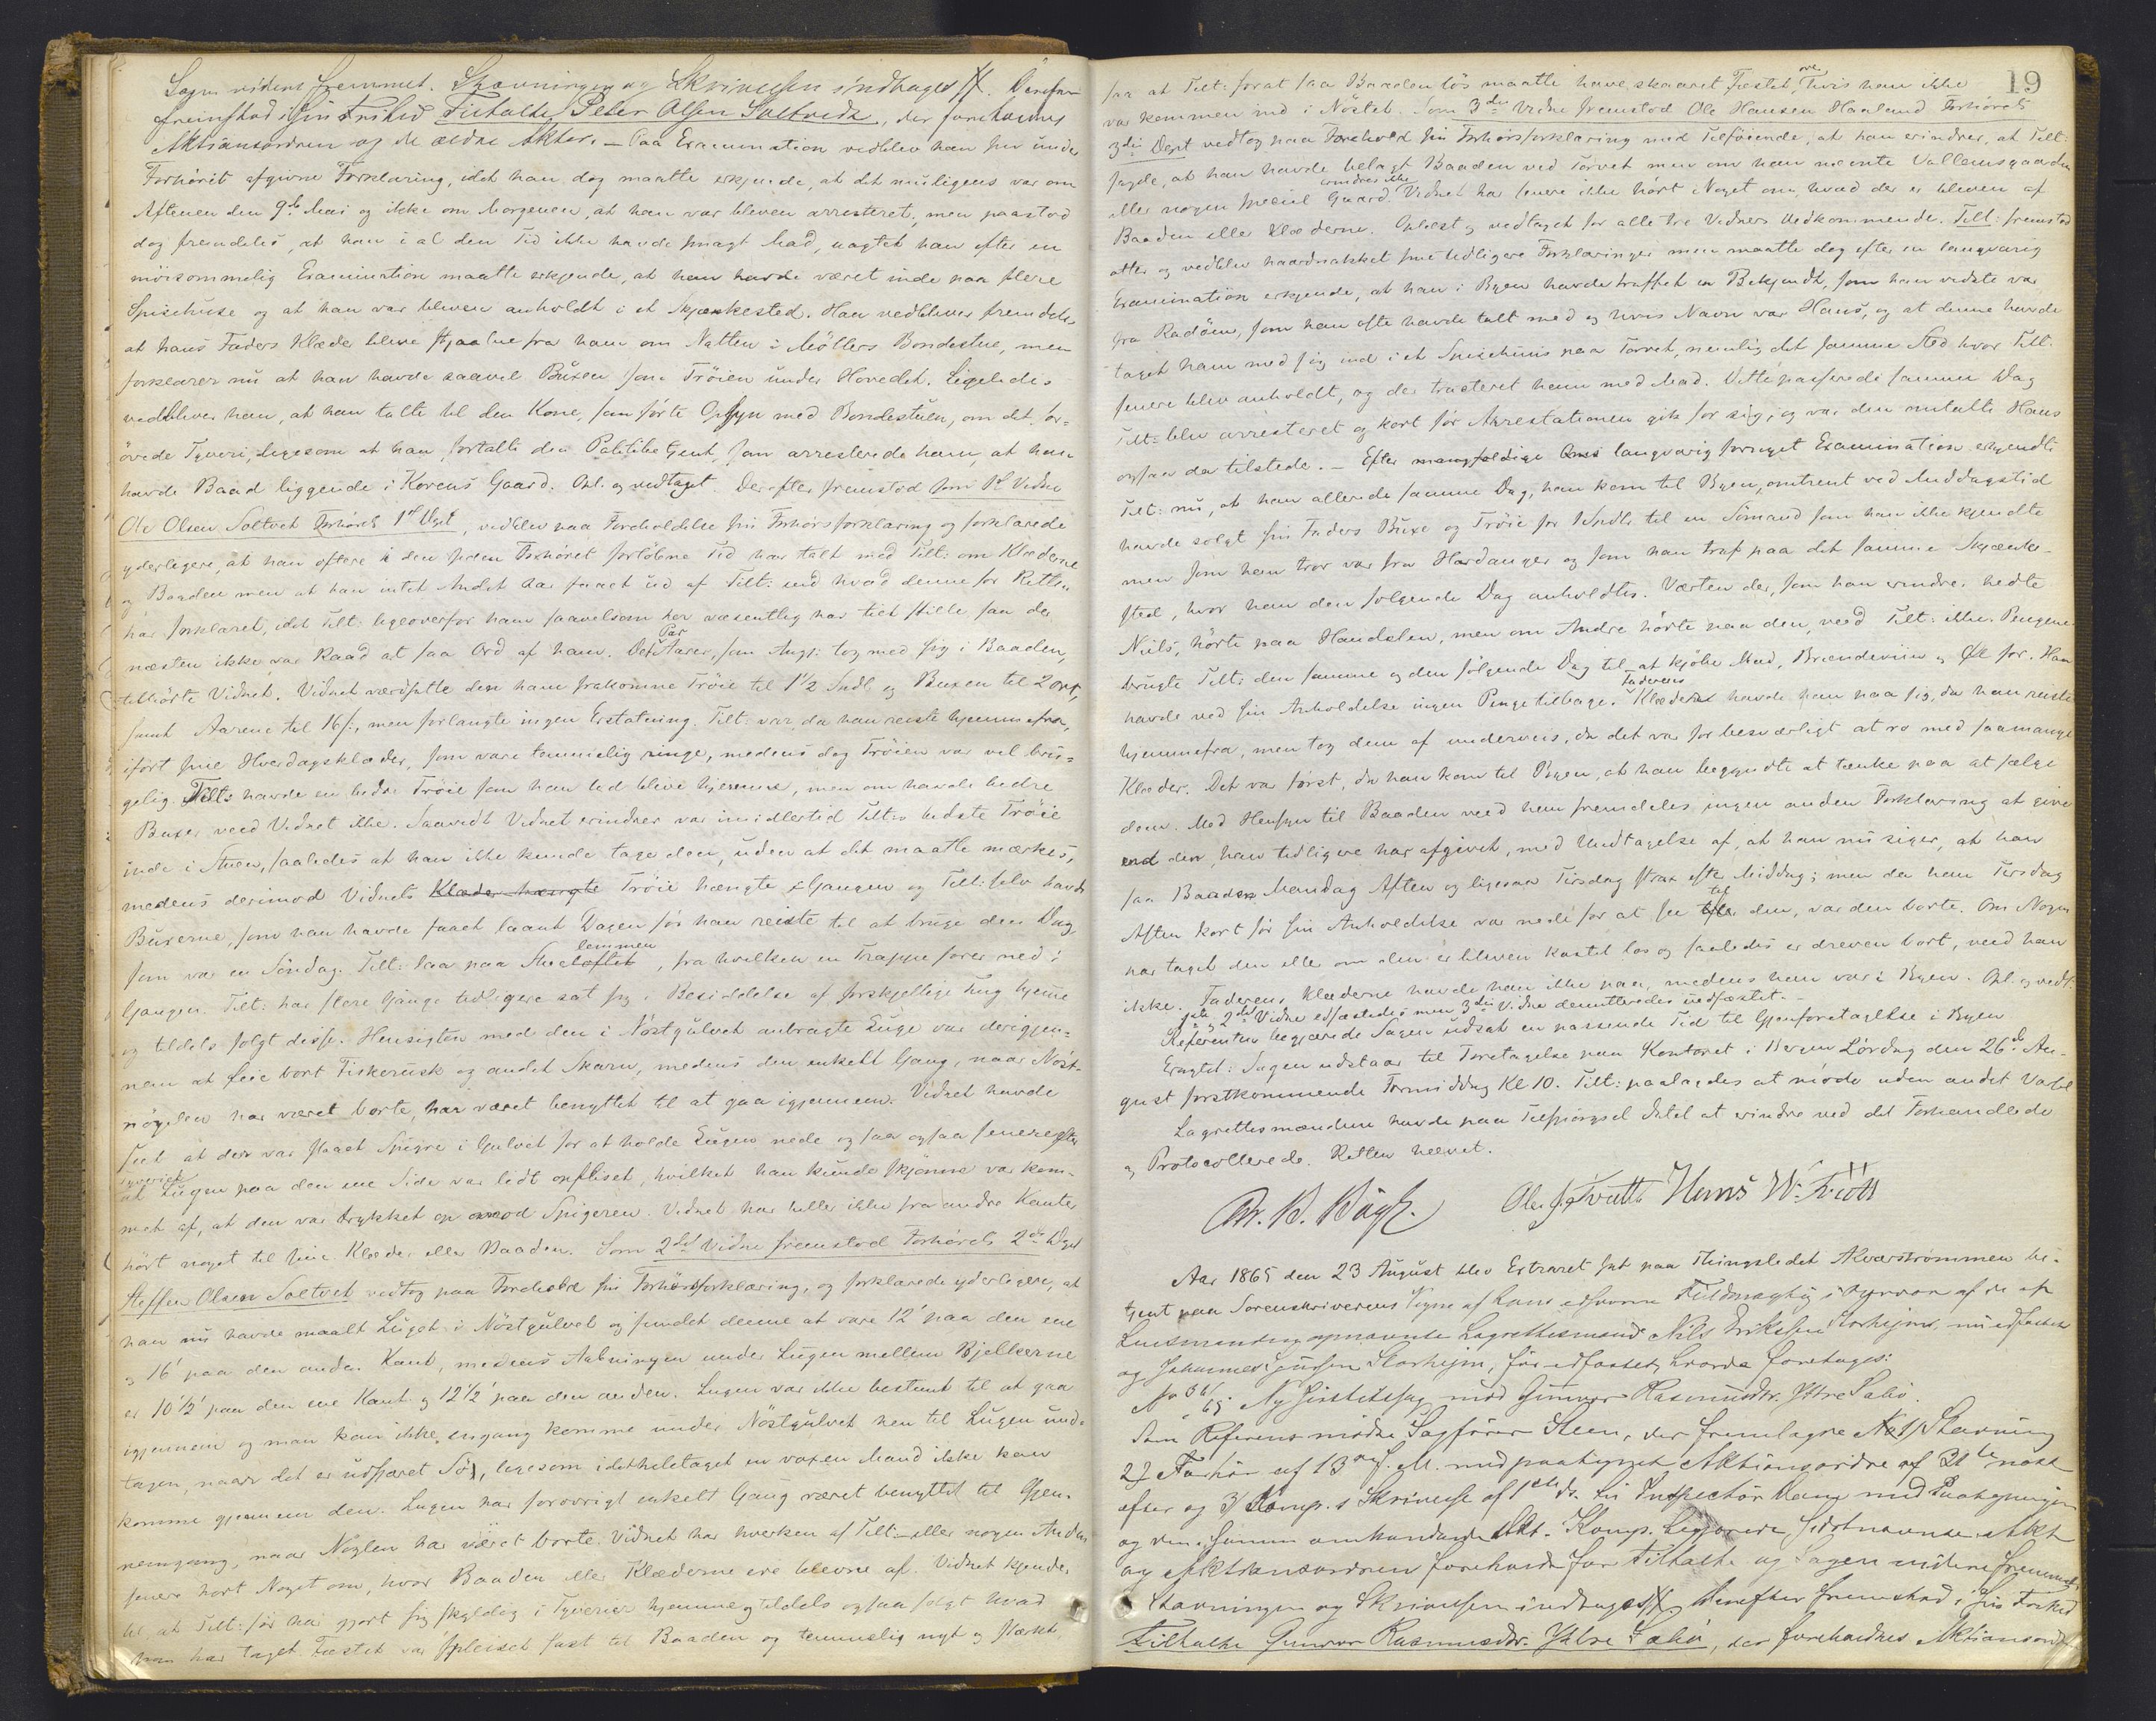 Sagen videre fremmet. Stævningen og Skrivelsen indtages #. Derefter
fremstod i sin Frihed Tiltalte Peter Olsen Soltvedt, der foreholdtes
Aktionsordren og de ældre Akter. — Paa Examination vedblev han sin under
Forhöret afgivne Forklaring, idet han dog maatte erkjende, at det muligens var om
Aftenen den 9de Mai og ikke om Morgenen, at han var bleven arresteret, men paastod
dog fremdeles, at han i al den Tid ikke havde smagt Mad, uagtet han efter en
möisommelig Examination maatte erkjende, at han havde været inde paa flere
Spisehuse og at han var bleven anholdt i et Skjænkested. Han vedbliver fremdeles
at hans Faders Klæder bleve stjaalne fra ham om Natten i Möllers Bondestue, men
forklarer nu at han havde saavel Buxen som Tröien under Hovedet. Ligeledes
vedbliver han, at han talte til den Kone, som förte Opsyn med Bondestuen, om det for-
övede Tyveri, ligesom at han fortalte den Politibetjent, som arresterede ham, at han
havde Baad liggende i Korens Gaard. Opl. og vedtaget. Derefter fremstod som 1ste Vidne
Ole Olsen Soltvet Forhörets 1ste Dept, vedblev paa Foreholdelse sin Forhörsforklaring og forklarede
yderligere, at han oftere i den siden Forhöret forlöbne Tid har talt med Tilt: om Klæderne
og Baaden men at han intet Andet har faaet ud af Tilt: end hvad denne for Retten
har forklaret, idet Tilt: ligeoverfor ham saavelsom her væsentlig har tiet stille, saa der
næsten ikke var Raad at faa Ord af ham. Det Par Aarer, som Angj: tog med sig i Baaden,
tilhörte Vidnet. Vidnet værdsatte den ham frakomne Tröie til 1½ Spdl og Buxen til 2 ort,
samt Aarene til 16 s:, men forlangte ingen Erstatning. Tilt: var, da han reiste hjemmefra,
iført sine Hverdagsklæder, som vare temmelig ringe, medens dog Tröien var vel bru-
gelig. Tilts havde en bedre Tröie som han lod blive hjemme, men om havde bedre
Buxer veed Vidnet ikke. Saavidt Vidnet erindrer var imidlertid Tilt:s bedste Tröie
inde i Stuen, saaledes at han ikke kunde tage den, uden at det maatte mærkes,
medens derimod Vidnets Klæder hængte Tröie hængte i Gangen og Tilt: selv havde
Buxerne, som han havde faaet laant Dagen för han reiste til at bruge den Dag,
som var en Söndag. Tilt: laa paa Stuelemmen, fra hvilken en Trappe förer ned i
Gangen. Tilt: har flere Gange tidligere sat sig i Besiddelse af forskjellige Ting hjemme
og tildels solgt disse. Hensigten med den i Nöstgulvet anbragte Luge var derigjen-
nem at feie bort Fiskerusk og andet Skarn, medens den enkelt Gang, naar Nöst-
nöglen har været borte, har været benyttet til at gaa igjennem. Vidnet havde
seet at der var slaaet Spigre i Gulvet for at holde Lugen nede og saa ogsaa senere efter
Tyveriet at Lugen paa den ene Side var lidt opfliset, hvilket han kunde skjönne var kom-
met af, at den var trykket op imod Spigeren. Vidnet har heller ikke fra andre Kanter
hört noget til sine Klæder eller Baaden. Som 2det Vidne fremstod Forhörets 2det Dept
Steffen Olsen Soltvet vedtog paa Forehold sin Forhörsforklaring, og forklarede yderligere, at
han nu havde maalt Luget i Nöstgulvet og fundet denne at være 12' paa den ene
og 16' paa den anden Kant, medens Aabningen under Lugen mellem Bjelkerne
er 10½' paa den ene Kant og 12½' paa den anden. Lugen var ikke bestemt til at gaa
igjennem og man kan ikke engang komme under Nöstgulvet hen til Lugen und-
tagen, naar det er udfjæret Sö, ligesom idethele taget en voxen Mand ikke kan
komme gjennem den. Lugen har forövrigt enkelt Gang været benyttet til Gjen-
nemgang, naar Nöglen har været borte. Vidnet har hverken af Tilt: eller nogen Anden
senere hört Noget om, hvor Baaden eller Klæderne ere blevne af. Vidnet kjender
til, at Tilt: för har gjort sig skyldig i Tyverier hjemme og tildels ogsaa solgt hvad
han har taget. Fæstet var spleiset fast til Baaden og temmelig nyt og stærkt,
19
saa at Tilt: for at faa Baaden lös maatte have skaaret Fæstet ove, hvis han ikke
var kommen ind i Nöstet. Som 3die Vidne fremstod Ole Hansen Haaland Forhörets
3die Dept vedtog paa Forehold sin Forhörsforklaring med Tilföiende, at han erindrer, at Tilt:
sagde, at han havde belagt Baaden ved Torvet men om han nævnte Vallemsgaarden
eller nogen speciel Gaard erindres ikke. Vidnet har senere ikke hört Noget om hvad der er bleven af
Baaden eller Klæderne. Oplæst og vedtaget for alle tre Vidners Vedkommende. Tilt: fremstod
atter og vedblev haardnakket sine tidligere Forklaringer men maatte dog efter en langvarig
Examination erkjende, at han i Byen havde truffet en Bekjendt, som han vidste var
fra Radöen, som han ofte havde talt med og hvis Navn var Hans, og at denne havde
taget ham med sig ind i et Spisehuus paa Torvet, nemlig det samme Sted hvor Tilt:
senere blev anholdt, og der tracteret ham med Mad. Dette passerede samme Dag
Tilt: blev arresteret og kort för Arrestationen gik for sig, og var den omtalte Hans
ogsaa da tilstede. — Efter mangfoldige langvarig fornyet Examination erkjendte
Tilt: nu, at han allerede samme Dag, han kom til Byen, omtrent ved Middagstid
havde solgt sin Faders Buxe og Tröie for 1 Spdl til en Sömand som han ikke kjendte
men som han tror var fra Hardanger og som han traf paa det samme Skjænke-
sted, hvor han den fölgende Dag anholdtes. Værten der, som han erindrer hedte
Niels, hörte paa Handelen, men om Andre hörte paa den, veed Tilt: ikke. Pengene
brugte Tilt: den samme og den fölgende Dag til at kjöbe Mad, Brændeviin og Öl for. Han
havde ved sin Anholdelse ingen Penge tilbage. Faderens Klæder havde han paa sig, da han reiste
hjemmefra, men tog dem af underveis, da det var for besværligt at ro med saamange
Klæder. Det var först, da han kom til Byen, at han begyndte at tænke paa at sælge
dem. Med Hensyn til Baaden veed han fremdeles ingen anden Forklaring at give
end den han tidligere har afgivet, med Undtagelse af, at han nu siger, at han
saa Baaden Mandag Aften og ligesaa Tirsdag strax efter Middag; men da han Tirsdag
Aften kort för sin Anholdelse var nede for at see til den, var den borte. Om Nogen
har taget den eller om den er bleven kastet los og saaledes er dreven bort, veed han
ikke. Faderens Klæderne havde han ikke paa, medens han var i Byen. Opl. og vedt:
1ste og 2det Vidne edfæstedes men 3die Vidne demitteredes uedfæstet. —
Referenten begjærede Sagen udsat en passende Tid til Gjenforetagelse i Byen
Eragtet: Sagen udstaar til Foretagelse paa Kontoret i Bergen Lördag den 26de Au-
gust förstkommende Formiddag Kl 10. Tilt: paalagdes at möde uden andet Varsel
Lagrettesmændene havde paa Tilspörgsel Intet at erindre ved det Forhandlede
og Protocollerede. Retten hævet.
Ole J. Tvætte Hans W.
Aar 1865 den 23 August blev Extraret sat paa Thingstedet Alværströmmen be-
tjent paa Sorenskriverens Vegne af hans edsvorne Fuldmægtig i Overvær af de af
Lensmanden opnævnte Lagrettesmænd Nils Eriksen Storhejm, nu edfæstet
og Johannes Storhejm, för edfæstet, hvorda foretoges:
No 36/65. Ny Justitssag mod Gunvor Rasmusdtr. Yttre Sæbö.
Som Referent mödte Sagförer Steen, der fremlagde No 1) Stævning
2) Forhör af 13de f. M. med paategnet Aktionsordre af 31te næst
efter og 3) Komp.s Skrivelse af 1ste ds. til Inspectör Dam med Paategninger
og den i samme omhandlede Akt. Komp. begjærede sidstnævnte Akt
og Aktionsordren foreholdt for Tiltalte og Sagen videre fremmet
Stævningen og Skrivelsen indtages #. Derefter fremstod i sin Frihed
Tiltalte Gunvor Rasmusdtr. Yttre Sæbö, der foreholdtes Aktionsord-